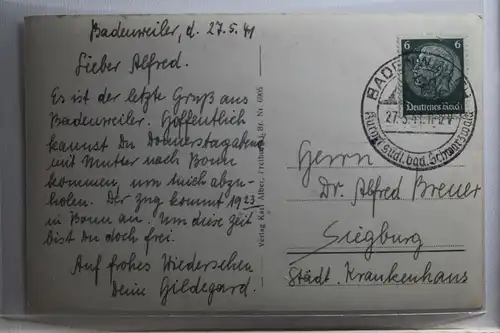 Badenweiler, d. 27.5.41
Lieber Alfred.
Es ist der letzte Gruß aus
Badenweiler. Hoffentlich
kannst Du Donnerstagabend
mit Mutter nach Bonn
kommen, um mich abzu-
holen. Der Zug kommt 19 23
in Bonn an. Um diese Zeit
bist Du doch frei.
Auf frohes Wiedersehen
Deine Hildegard.
Verlag Karl Alber, Freiburg i. Br. Nr. 6905
6 6
Deutsches Reich
BADENWEILER
27.5.41.
Kurort südl. bad. Schwarzwald
Herrn
Dr. Alfred Breuer
Siegburg
Städt. Krankenhaus